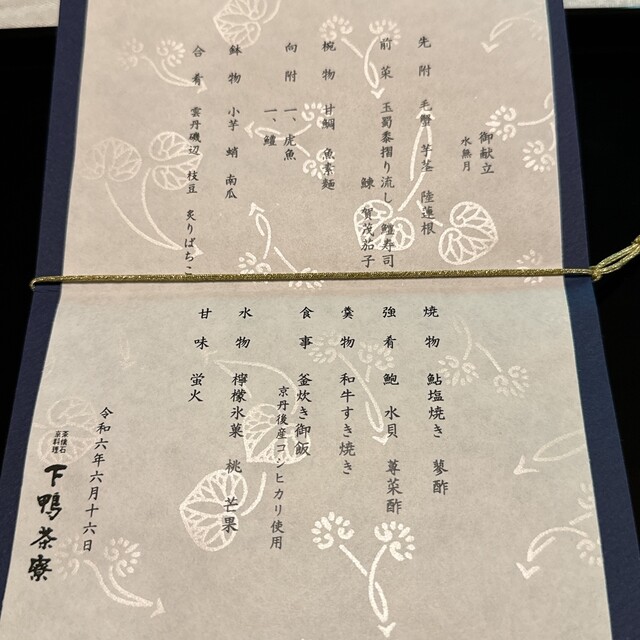 御献立
水無月
先附 毛蟹 芋茎 陸蓮根
前菜 玉蜀黍摺り流し 鱧寿司
鰊 賀茂茄子
椀物 甘鯛 魚素麺
向附 一、虎魚
一、鱧
鉢物 小芋 蛸 南瓜
合肴 雲丹磯辺 枝豆 炙りばちこ
焼物 鮎塩焼き 蓼酢
強肴 鮑 水貝 蓴菜酢
羹物 和牛すき焼き
食事 釜炊き御飯
京丹後産コシヒカリ使用
水物 檸檬氷菓 桃 芒果
甘味 蛍火
令和六年六月十六日
茶懐石
京料理
下鴨茶寮